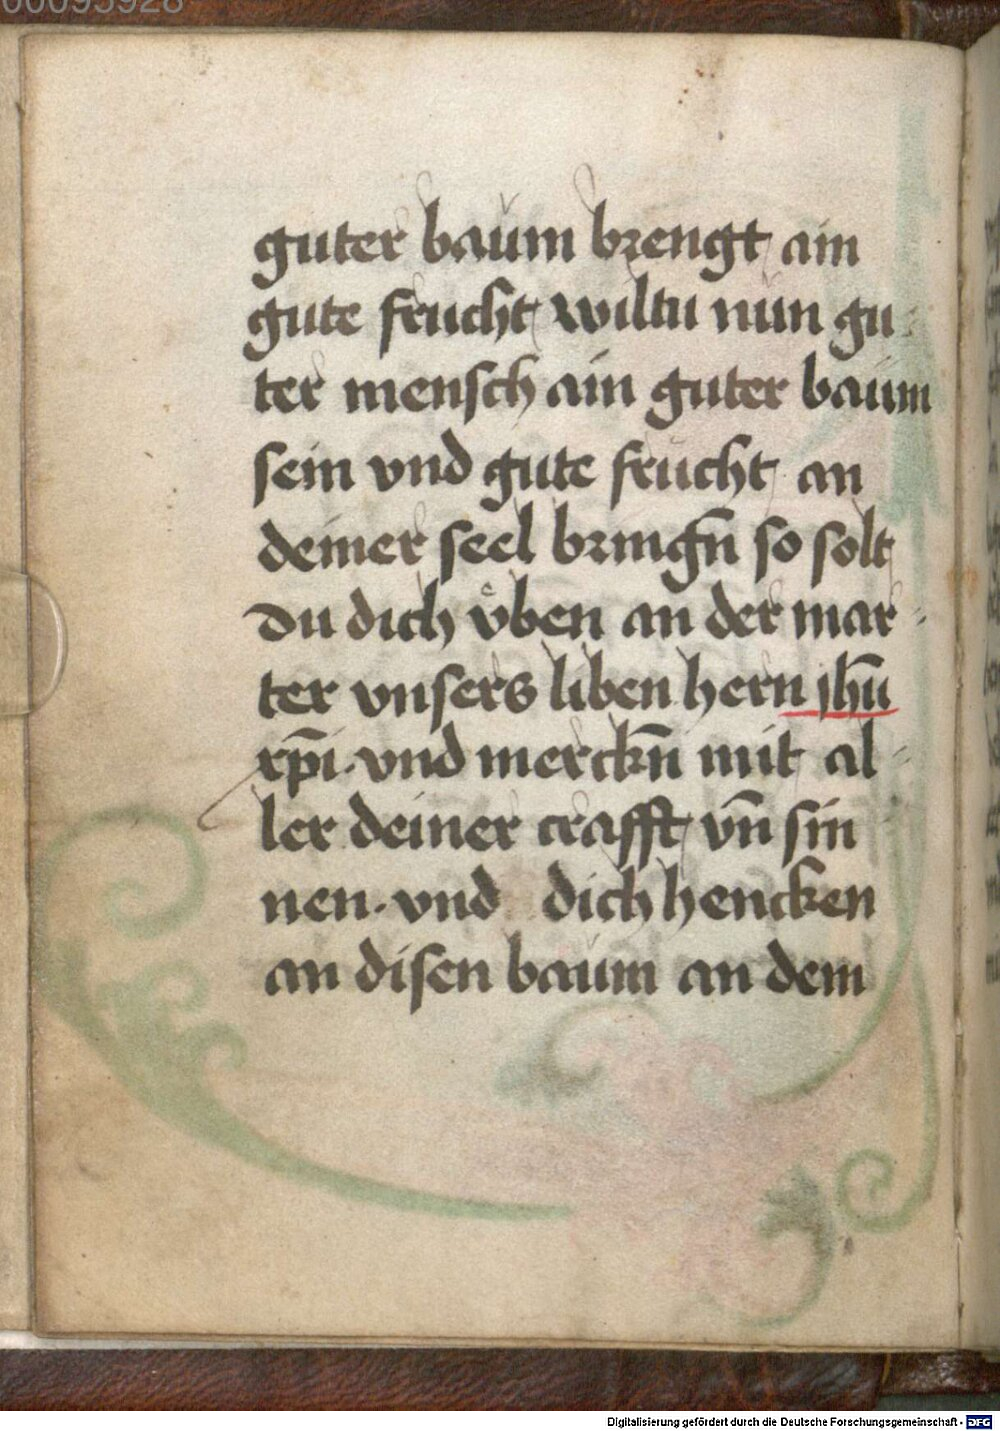 00095928
guter baum brengt ain
gute frucht wiltu nun gu-
ter mensch ain guter baum
sein vnd gute frucht an
deiner seel bringn̄ so solt
du dich v̊ben an der mar-
ter vnsers liben hern jhū
xp̄i. vnd merckn̄ mit al-
ler deiner crafft vn̄ sin
nen. vnd dich hencken
an disen baum an dem
Digitalisierung gefördert durch die Deutsche Forschungsgemeinschaft - DFG